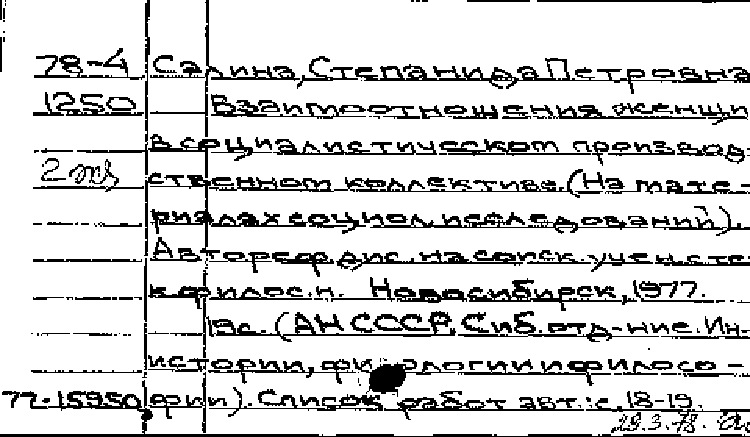 78-4 Салина, Степанида Петровна
1250 Взаимоотношения женщин
в социалистическом производ-
2 экз ственном коллективе. (На мате-
риалах социол. исследований).
Автореф. дис. на соиск. учен. сте
к. филос. н. Новосибирск, 1977.
19с. (АН СССР. Сиб. отд-ние. Ин-
истории, филологии и филосо-
77-15950 фии). Список работ авт.: с. 18-19.
29.3.78.